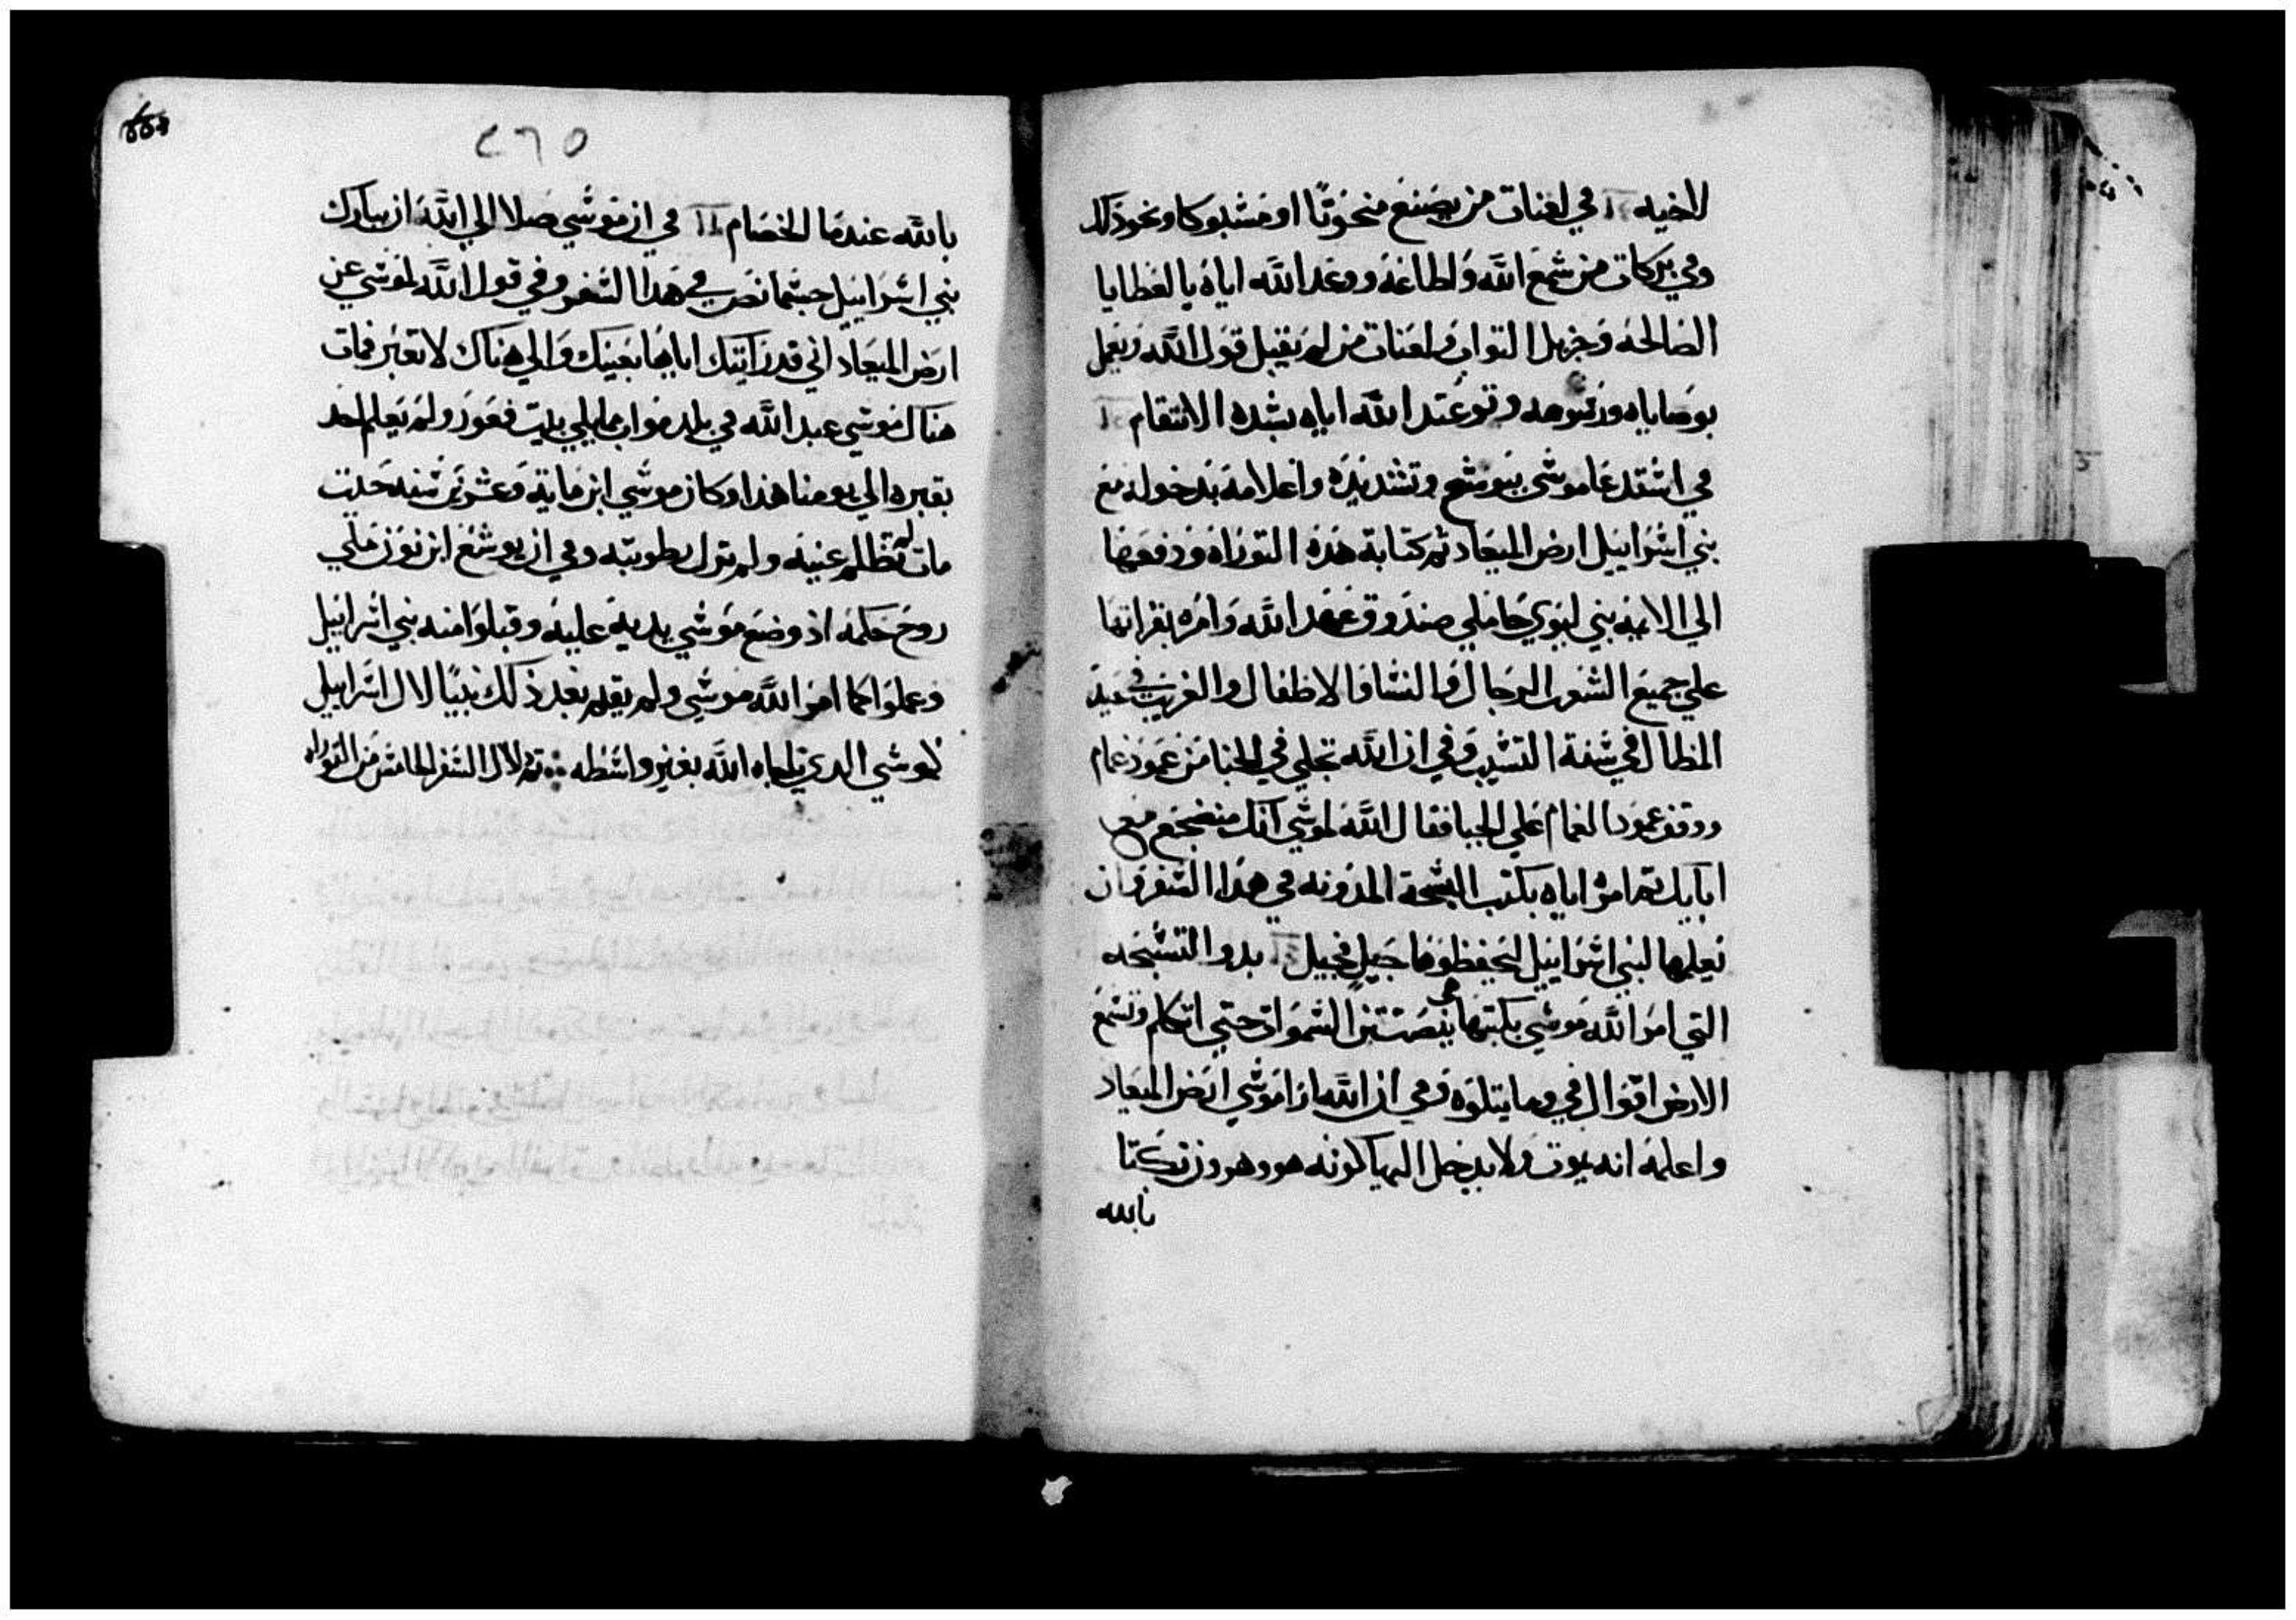 لاخيه في لعنات من يصنع منحوتا او مسبوكا ونحو ذلك
وفي بركات من سمع الله واطاعه ووعد الله اياه بالعطايا
الصالحه وجزيل التواب ولعنات من لم يقبل قول الله ويعمل
بوصاياه ورسومه وتوعد الله اياه بشده الانتقام
في استدعا موسى يوشع وتشديده واعلامه بدخوله مع
بني اسراييل ارض الميعاد ثم كتابة هذه التوراه ودفعها
الي الايمه بني ليوي حاملي صندوق عهد الله وامره بقراتها
علي جميع الشعب الرجال والنسا والاطفال والغريب في عيد
المظال في سنة التسييب وفي ان الله تجلي في الخبا من عمود غمام
ووقف عمود الغمام علي الخبا فقال الله لموسي انك منضجع مع
ابايك ثم امره اياه بكتب التسبحة المدونه في هذا السفر وان
يعلمها لبني اسراييل ليحفظوها جيل فجيل بدو التسبحه
التي امر الله موسي بكتبها هي ينصتن السموات حتي اتكلم وتسمع
الارض اقوال في وما يتلوه وفي ان الله ارا موسي ارض الميعاد
واعلمه انه يموت ولا يدخل اليها كونه هو وهرون شكا
بالله
٢٦٥
بالله عند ما الخصام في ان موسي صلا الي الله ان يبارك
بني اسراييل حسبما نص في هذا السفر وفي قول الله لموسي عن
ارض الميعاد اني قد رايتك اياها بعينيك والي هناك لا تعبر فمات
هناك موسي عبد الله في بلد مواب مما يلي بيت فغور ولم يعلم احد
بقبره الي يومنا هذا وكان موسي ابن ماية وعشرين سنه حيت
مات لم تظلم عينيه ولم تزل رطوبته وفي ان يوشع ابن نون ملي
روح حكمه اذ وضع موسي يديه عليه وقبلوا منه بني اسراييل
وعملوا كما امر الله موسي ولم يقم بعد ذلك نبيا لال اسراييل
كموسي الدي ناجاه الله بغير واسطه تم لال السفر الخامس من التوراه